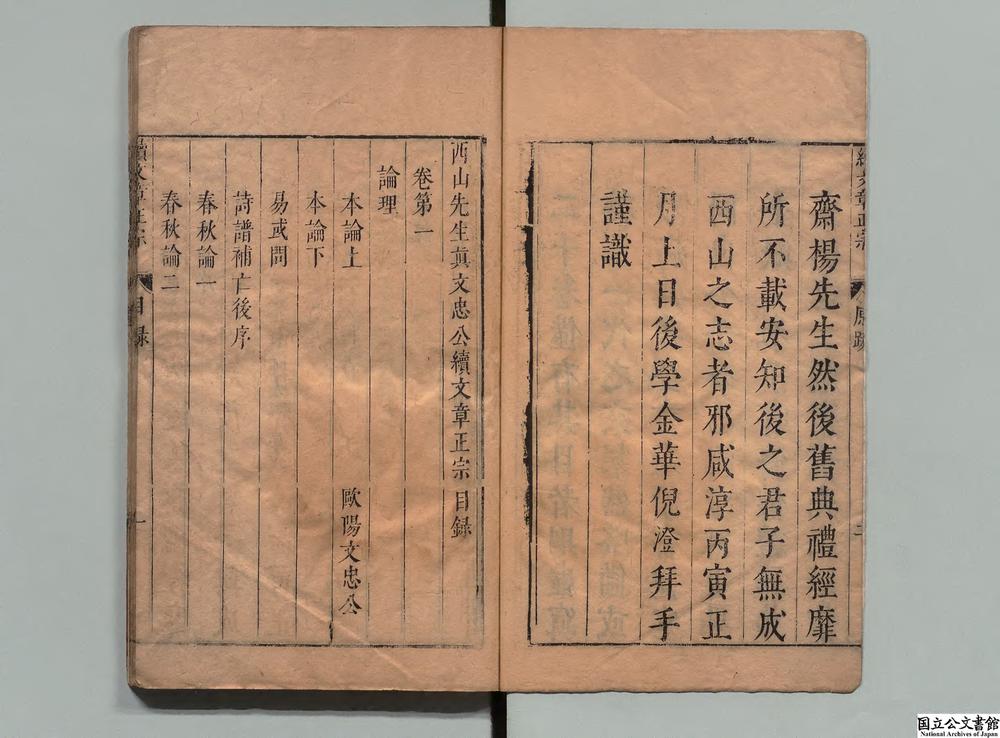 齋楊先生然後舊典禮經靡
所不載安知後之君子無成
西山之志者邪咸淳丙寅正
月上日後學金華倪澄拜手
謹識
二
西山先生真文忠公續文章正宗目錄
卷第一
論理
本論上　歐陽文忠公
本論下
易或問
詩譜補亡後序
春秋論一
春秋論二
續文章正宗　目錄　一
国立公文書館
National Archives of Japan